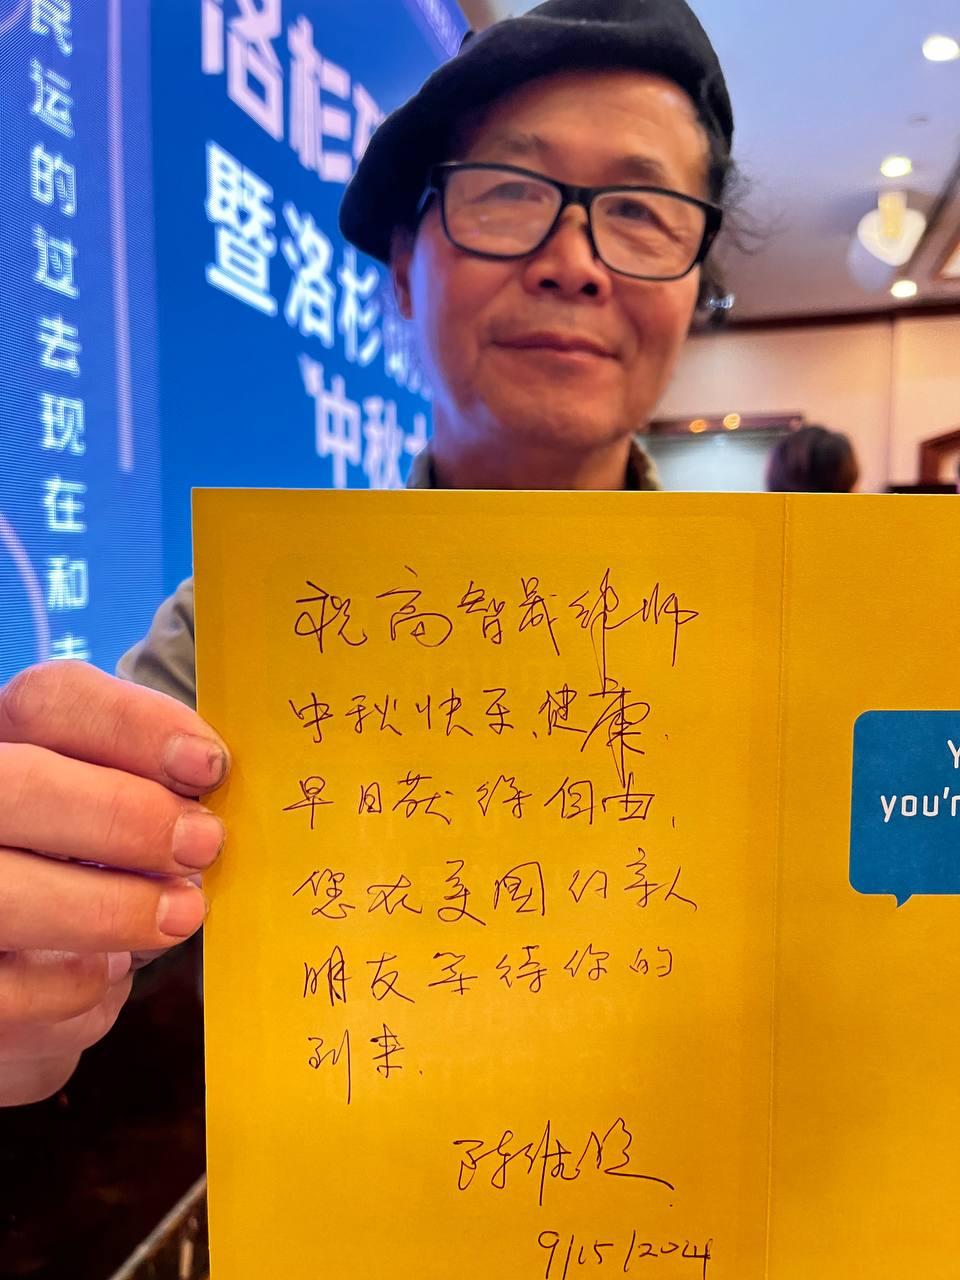 民运的过去现在和
洛杉
暨洛杉
"中秋
祝高智晟律师
中秋快乐、健康、
早日获得自由,
您在美国的亲人
朋友等待你的
到来.
陈维
9/15/2024
Y
you'r